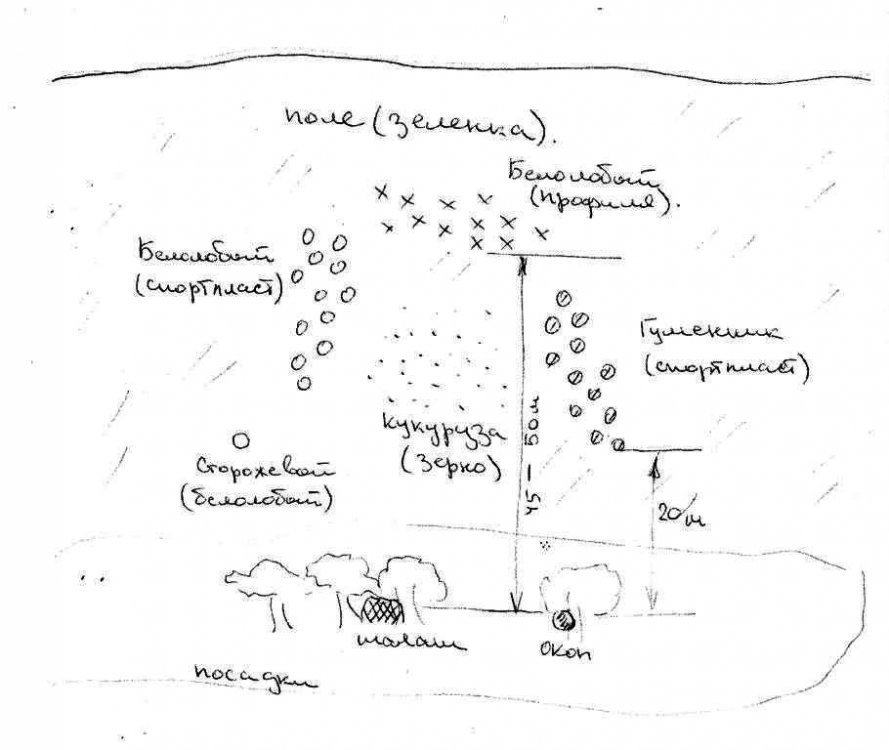 поле (зеленка).
Белолобый
(профиля).
Белолобый
(спортпласт)
Гуменник
(спортпласт)
Кукуруза
(зерно)
45 - 50 м
Сторожевой
(белолобый)
20 м
шалаш
окоп
посадки